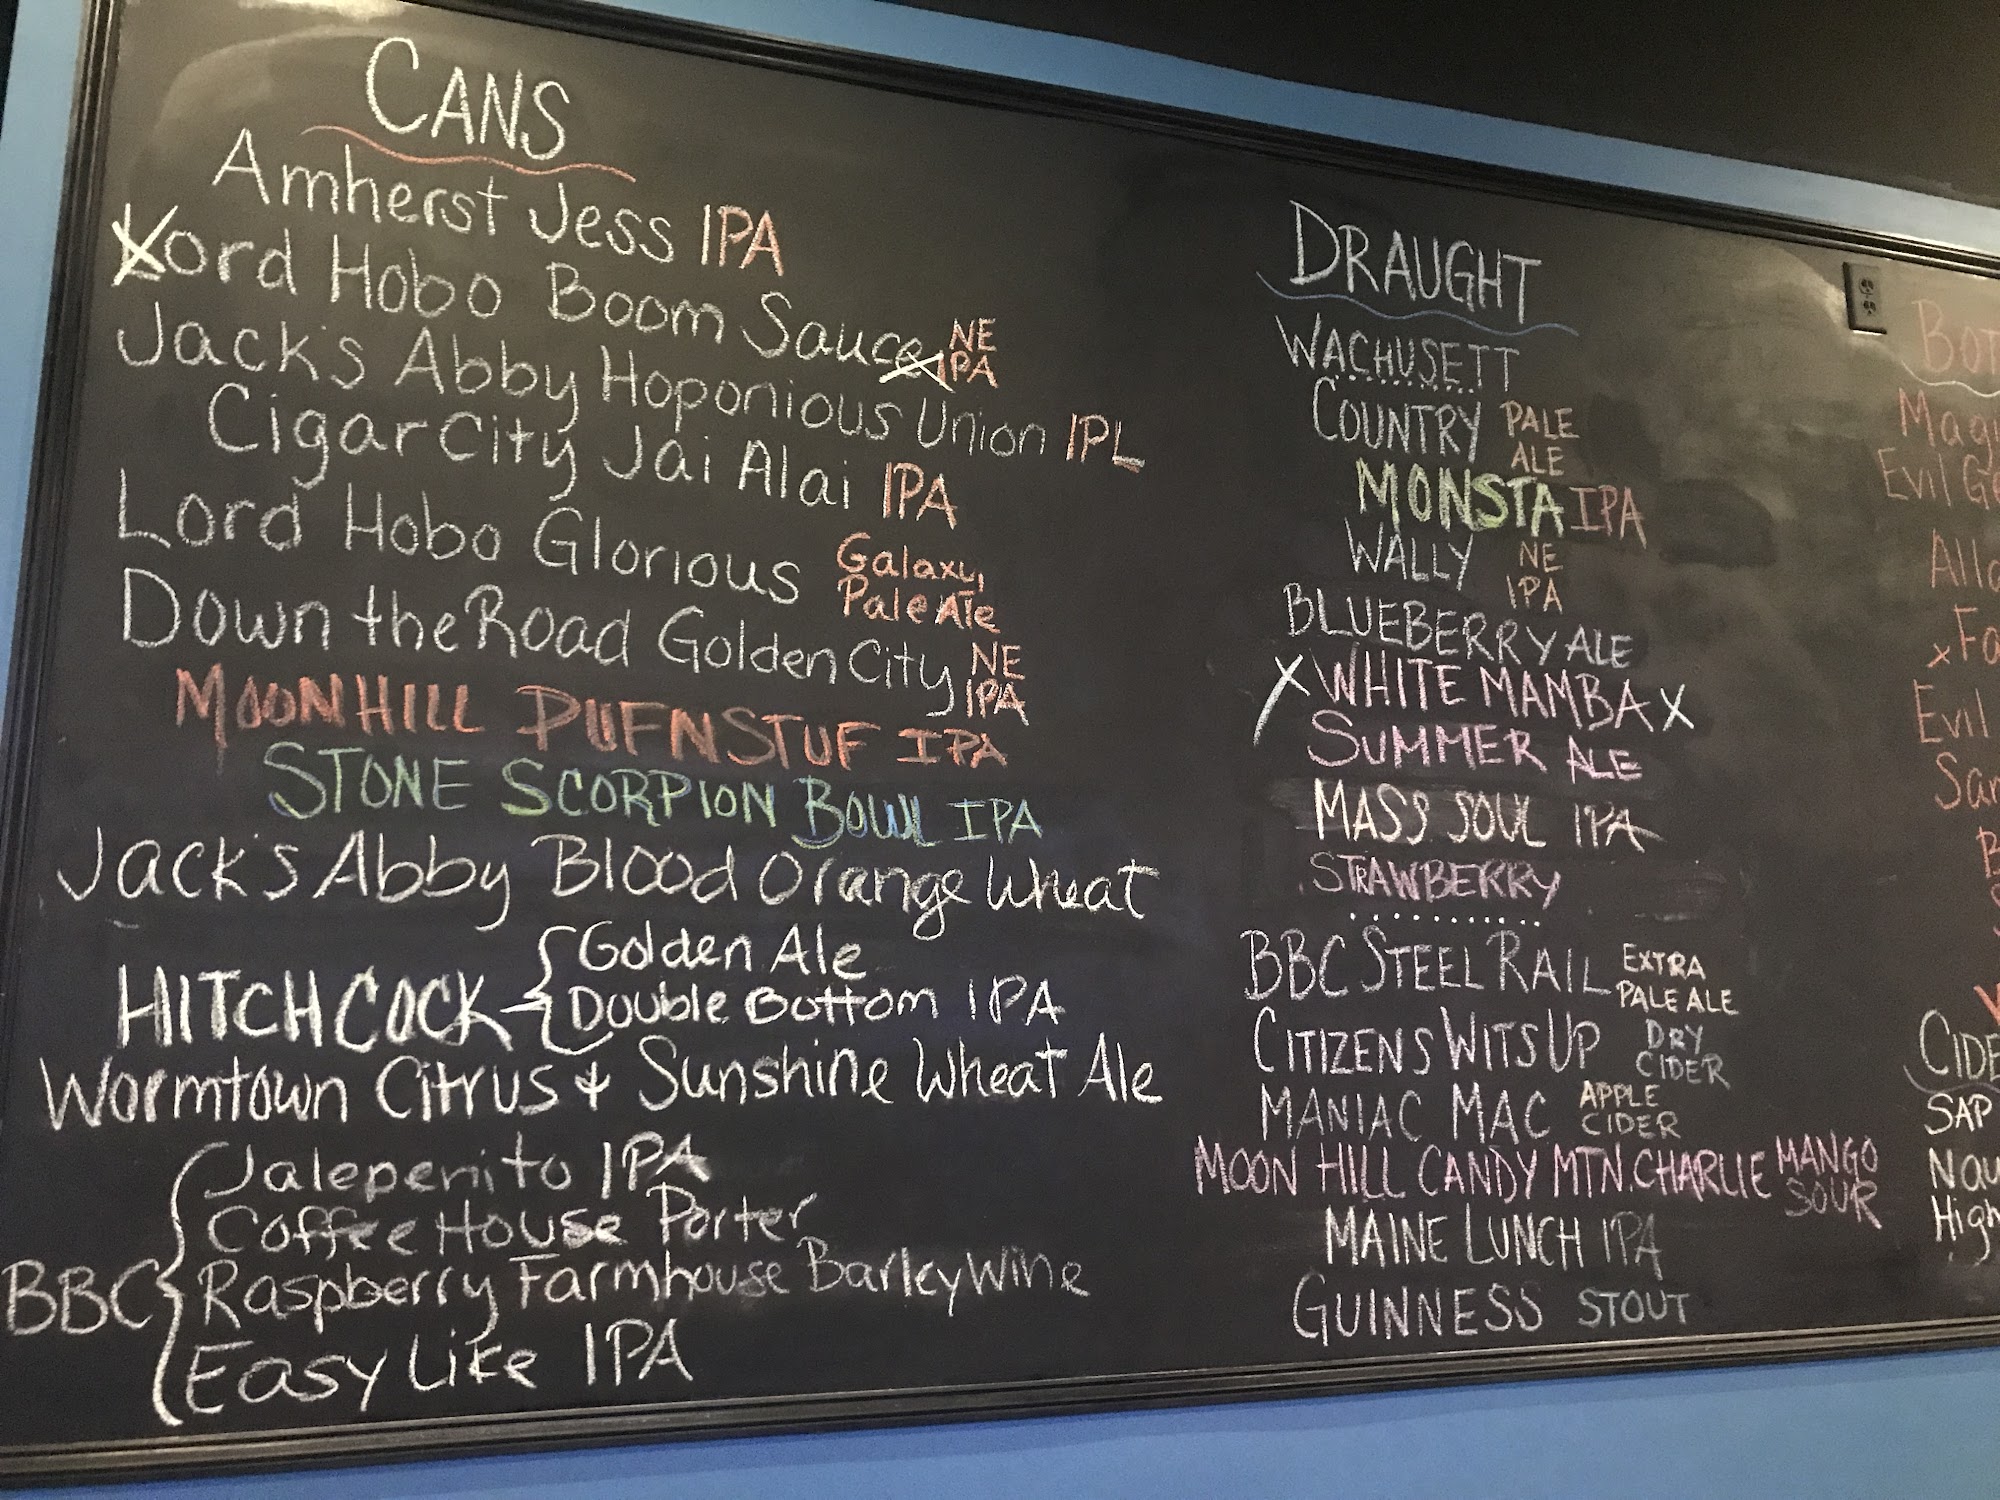 CANS
Amherst Jess IPA
Lord Hobo Boom Sauce NE IPA
Jack's Abby Hoponious Union IPL
Cigar City Jai Alai IPA
Lord Hobo Glorious Galaxy Pale Ale
Down the Road Golden City NE IPA
MOON HILL PUFNSTUF IPA
STONE SCORPION BOWL IPA
Jack's Abby Blood Orange Wheat
HITCHCOCK
Golden Ale
Double Bottom IPA
Wormtown Citrus & Sunshine Wheat Ale
BBC
Jalepenito IPA
Coffee House Porter
Raspberry Farmhouse Barleywine
Easy Like IPA
DRAUGHT
WACHUSETT
COUNTRY PALE ALE
MONSTA IPA
WALLY NE IPA
BLUEBERRY ALE
X WHITE MAMBA X
SUMMER ALE
MASS SOUL IPA
STRAWBERRY
BBC STEEL RAIL EXTRA PALE ALE
CITIZENS WITS UP DRY CIDER
MANIAC MAC APPLE CIDER
MOON HILL CANDY MTN. CHARLIE MANGO SOUR
MAINE LUNCH IPA
GUINNESS STOUT
BOT
Magi
Evil Ge
Alla
x Fo
Evil
Sam
CIDE
SAP
Nau
High